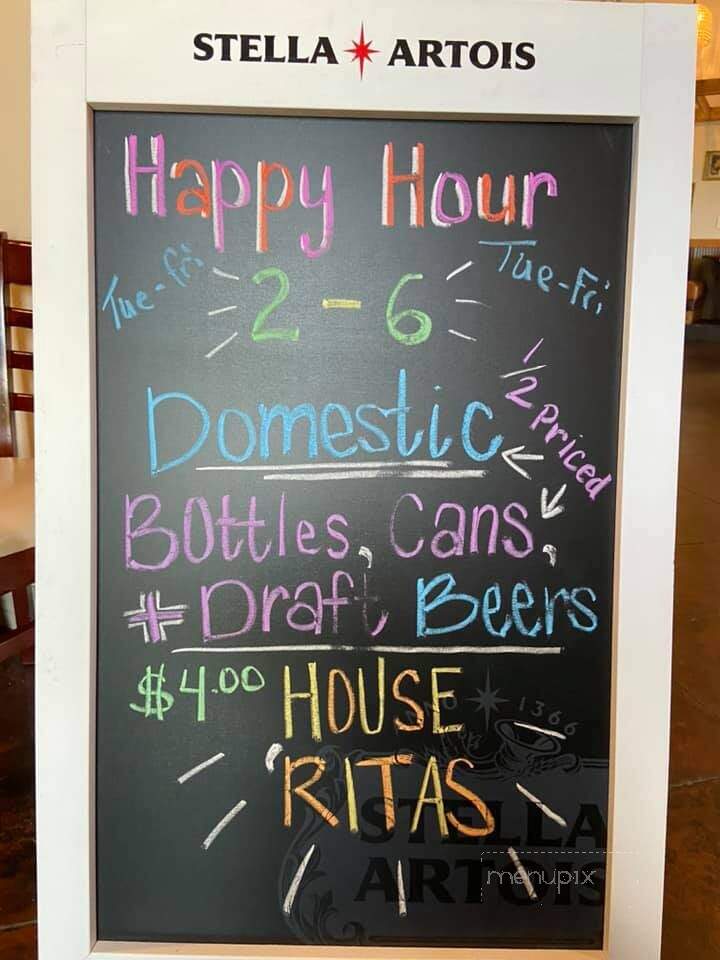 STELLA ARTOIS
Happy Hour
Tue-fri
2-6
Tue-Fri
1/2 Priced
Domestic
Bottles, Cans,
+ Draft Beers
$4.00 HOUSE
'RITAS
ANNO 1366
STELLA
ARTOIS
menupix